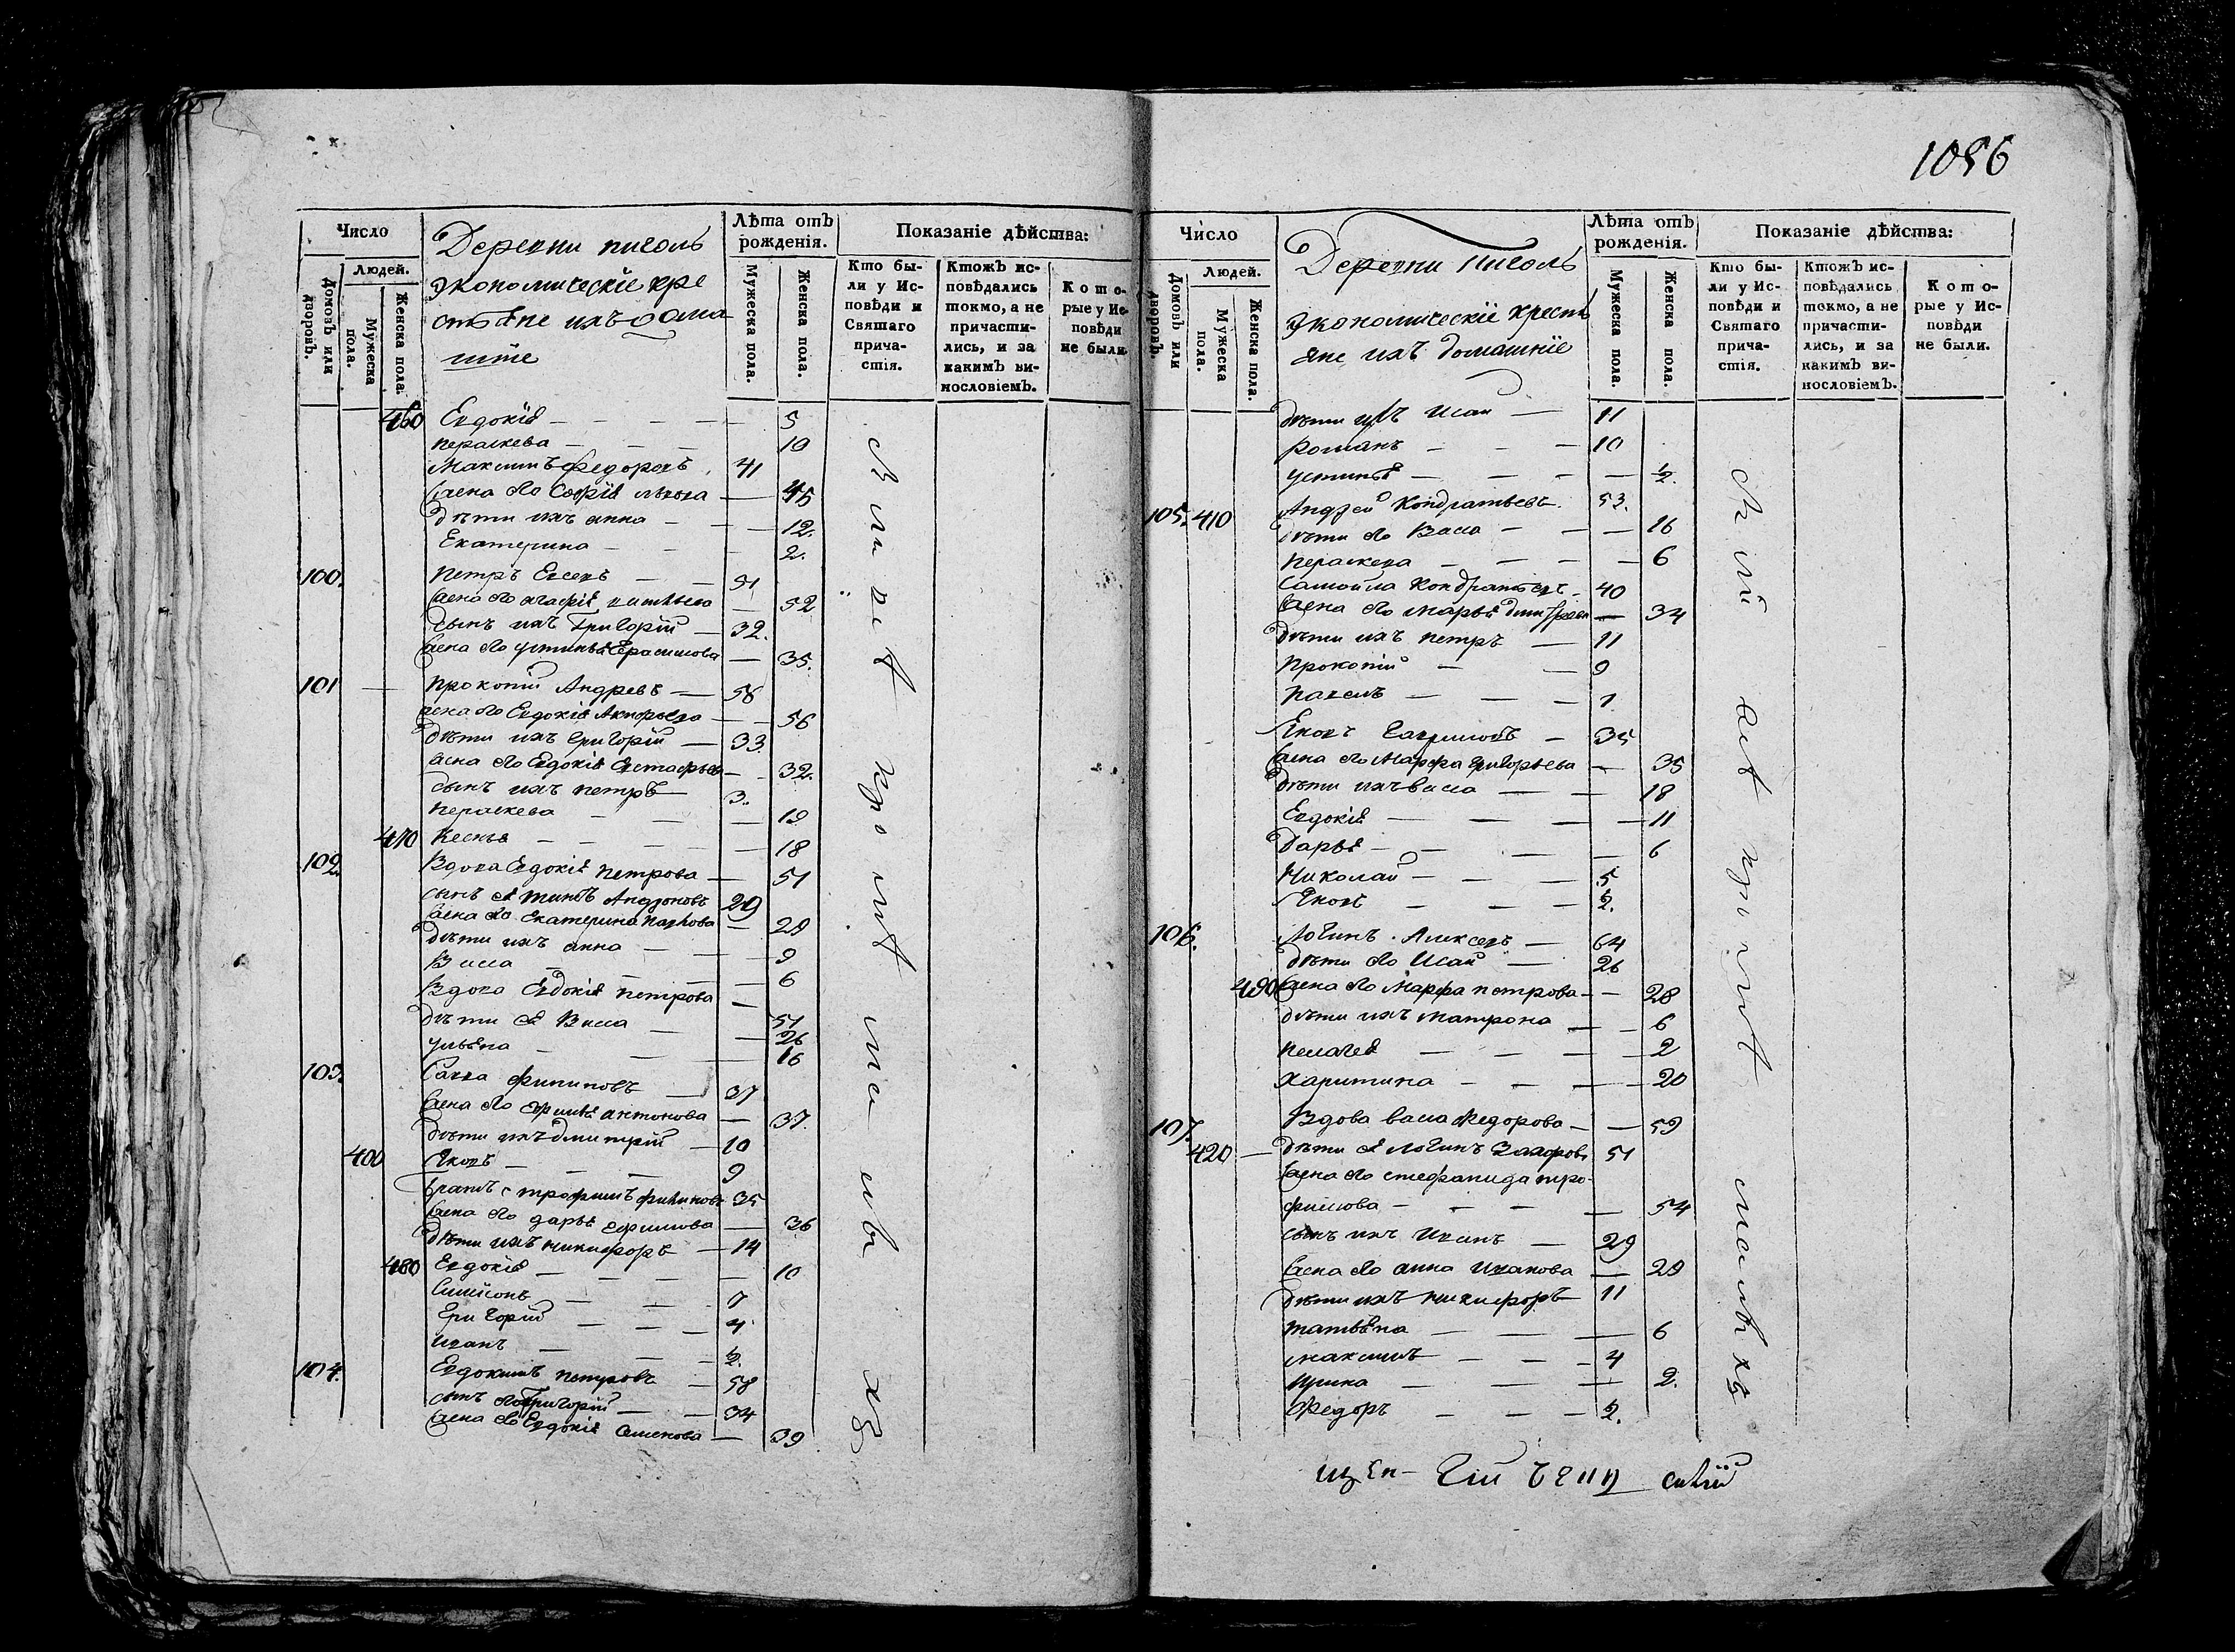 Число
Людей.
Домовъ или дворовъ.
Мужеска пола.
Женска пола.
Деревни
экономическіе кре
стьяне ихъ дома
шніе
Лѣта отъ рожденія.
Мужеска пола.
Женска пола.
Показаніе дѣйства:
Кто бы-
ли у Ис-
повѣди и
Святаго
прича-
стія.
Ктожъ ис-
повѣдались
токмо, а не
причасти-
лись, и за
какимъ ви-
нословіемъ.
Кото-
рые у Ис-
повѣди
не были.
460 Евдокія — 5
Пераскева — 10
Максимъ Федоровъ 41
Жена его Софія — 45
Дѣти ихъ Анна — 12.
Екатерина — 2.
100. Петръ — 51
Жена его — 52
Сынъ ихъ Григорій — 32.
Жена его Устинья Герасимова — 35.
101 Прокопій Андреевъ — 58
Жена его Евдокія — 56
Дѣти ихъ Григорій — 33
Жена его Евдокія Евстафьева — 32.
Сынъ ихъ Петръ — 3.
Пераскева — 19
470 Ксенья — 18
102. Вдова Евдокія Петрова — 51
Сынъ ея Андроновъ 29
Жена его Екатерина — 29
Дѣти ихъ Анна — 9
Васса — 6
Вдова Евдокія Петрова — 51
Дѣти ея Васса — 26
Ульяна — 16
103. Савва Филиповъ — 37
Жена его Антонова — 37.
Дѣти ихъ Дмитрій — 10
400 Яковъ — 9
Братъ Трофимъ Филиповъ 35
Жена его Дарья Ефимова — 36
Дѣти ихъ Никифоръ — 14
480 Евдокія — 10
Симіонъ — 7
Григорій — 4
Иванъ — 2.
104. Евдокимъ Петровъ — 58
Сынъ его Григорій — 34
Жена его Евдокія Семенова — 39
1056
Число
Людей.
Домовъ или дворовъ.
Мужеска пола.
Женска пола.
Деревни
экономическіе кресть
яне ихъ домашніе
Лѣта отъ рожденія.
Мужеска пола.
Женска пола.
Показаніе дѣйства:
Кто бы-
ли у Ис-
повѣди и
Святаго
прича-
стія.
Ктожъ ис-
повѣдались
токмо, а не
причасти-
лись, и за
какимъ ви-
нословіемъ.
Кото-
рые у Ис-
повѣди
не были.
Дѣти ихъ Исаи — 11
Романъ — 10
Устинья — ½.
105. 410 Андрей Кондратьевъ 53.
Дѣти его Васса — 16
Пераскева — 6
Самойла Кондратьевъ 40
Жена его Марья — 34
Дѣти ихъ Петръ — 11
Прокопій — 9
Павелъ — 1
Яковъ Гавриловъ — 35
Жена его Марфа Григорьева — 35
Дѣти ихъ Васса — 18
Евдокія — 11
Дарья — 6
Николай — 5
Яковъ — 2.
106. Логинъ Алексеевъ — 64
Дѣти его Исаи — 26
490 Жена его Марфа Петрова — 28
Дѣти ихъ Матрона — 6
Пелагея — 2
Харитина — 20
107. Вдова Васса Федорова — 59
420 Дѣти ея Логинъ Захаровъ 51
Жена его Стефанида Тро-
фимова — 54
Сынъ ихъ Иванъ — 29
Жена его Анна Иванова — 29
Дѣти ихъ Никифоръ 11
Татьяна — 6
Максимъ — 4
Ирина — 2.
Федоръ — 2.